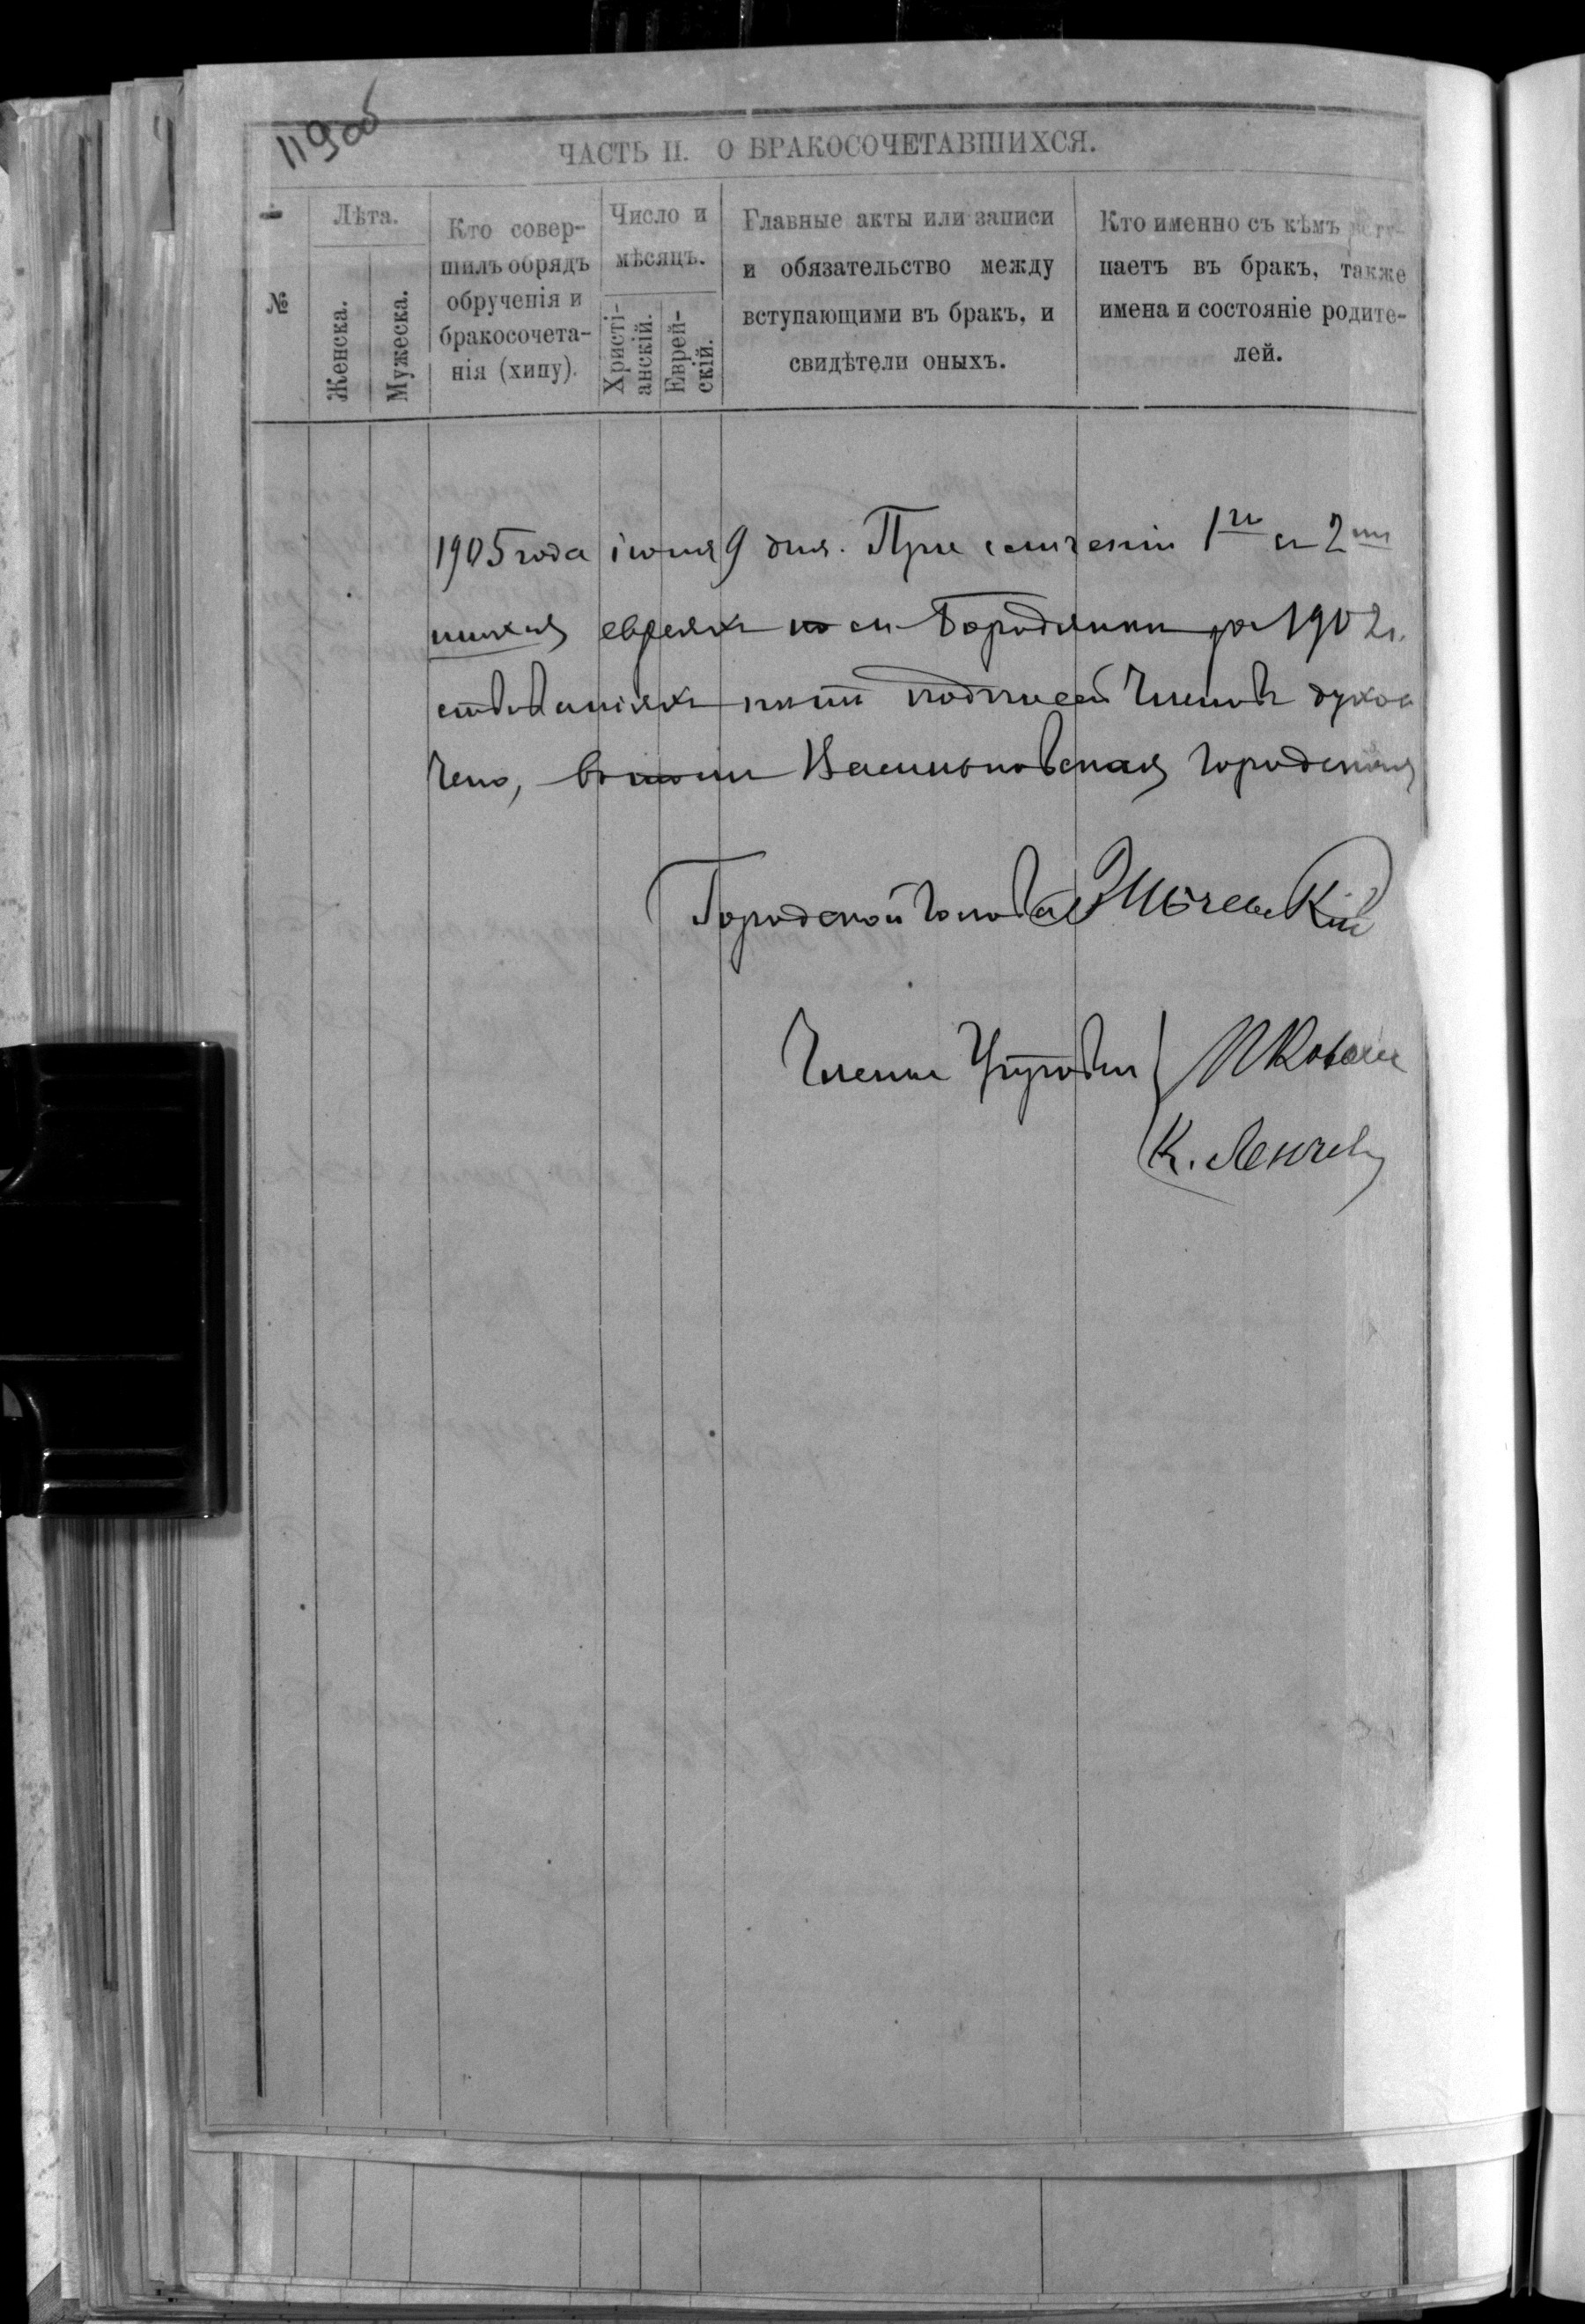 119 об
ЧАСТЬ II. О БРАКОСОЧЕТАВШИХСЯ.
№
Лѣта.
Женска.
Мужеска.
Кто совер-
шилъ обрядъ
обрученія и
бракосочета-
нія (хипу).
Число и
мѣсяцъ.
Христі-
анскій.
Еврей-
скій.
Главные акты или записи
и обязательство между
вступающими въ бракъ, и
свидѣтели оныхъ.
Кто именно съ кѣмъ всту-
паетъ въ бракъ, также
имена и состояніе родите-
лей.
1905 года іюня 9 дня. При сличеніи 1го и 2го
евреяхъ по м. Бородянки за 1902 г.
нѣтъ подписей Членовъ духов
чемъ, Васильковская городская
Городской Голова
Члены Управы
К.